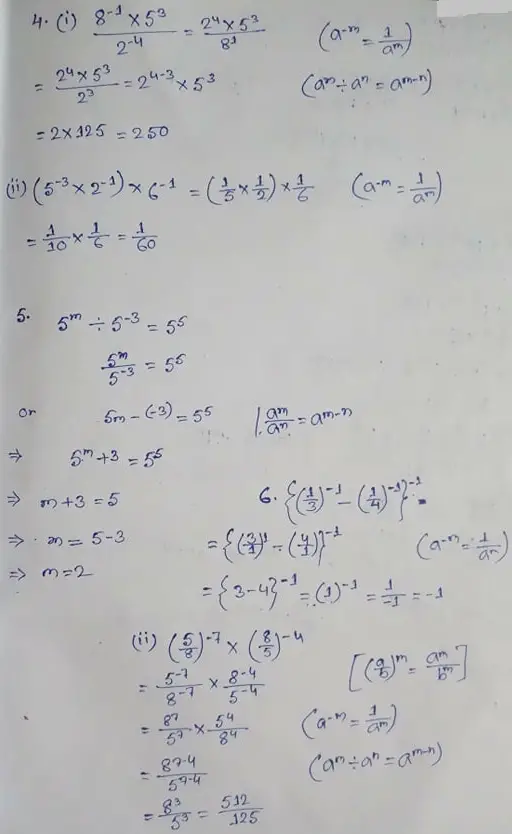 4. (i) (8⁻¹ × 5³)/2⁻⁴ = (2⁴ × 5³)/8¹ (a⁻ᵐ = 1/aᵐ)
= (2⁴ × 5³)/2³ = 2⁴⁻³ × 5³ (aᵐ ÷ aⁿ = aᵐ⁻ⁿ)
= 2 × 125 = 250
(ii) (5⁻³ × 2⁻¹) × 6⁻¹ = (1/5 × 1/2) × 1/6 (a⁻ᵐ = 1/aᵐ)
= 1/10 × 1/6 = 1/60
5. 5ᵐ ÷ 5⁻³ = 5⁵
5ᵐ/5⁻³ = 5⁵
or 5m - (-3) = 5⁵ | aᵐ/aⁿ = aᵐ⁻ⁿ
⇒ 5ᵐ + 3 = 5⁵
⇒ m + 3 = 5
⇒ m = 5 - 3
⇒ m = 2
6. {(1/3)⁻¹ - (1/4)⁻¹}⁻¹ =
= {(3/1)¹ - (4/1)}⁻¹ (a⁻ᵐ = 1/aⁿ)
= {3 - 4}⁻¹ = (1)⁻¹ = 1/-1 = -1
(ii) (5/8)⁻⁷ × (8/5)⁻⁴
= 5⁻⁷/8⁻⁷ × 8⁻⁴/5⁻⁴ [(a/b)ᵐ = aᵐ/bᵐ]
= 8⁷/5⁷ × 5⁴/8⁴ (a⁻ᵐ = 1/aᵐ)
= 8⁷⁻⁴/5⁷⁻⁴ (aᵐ ÷ aⁿ = aᵐ⁻ⁿ)
= 8³/5³ = 512/125